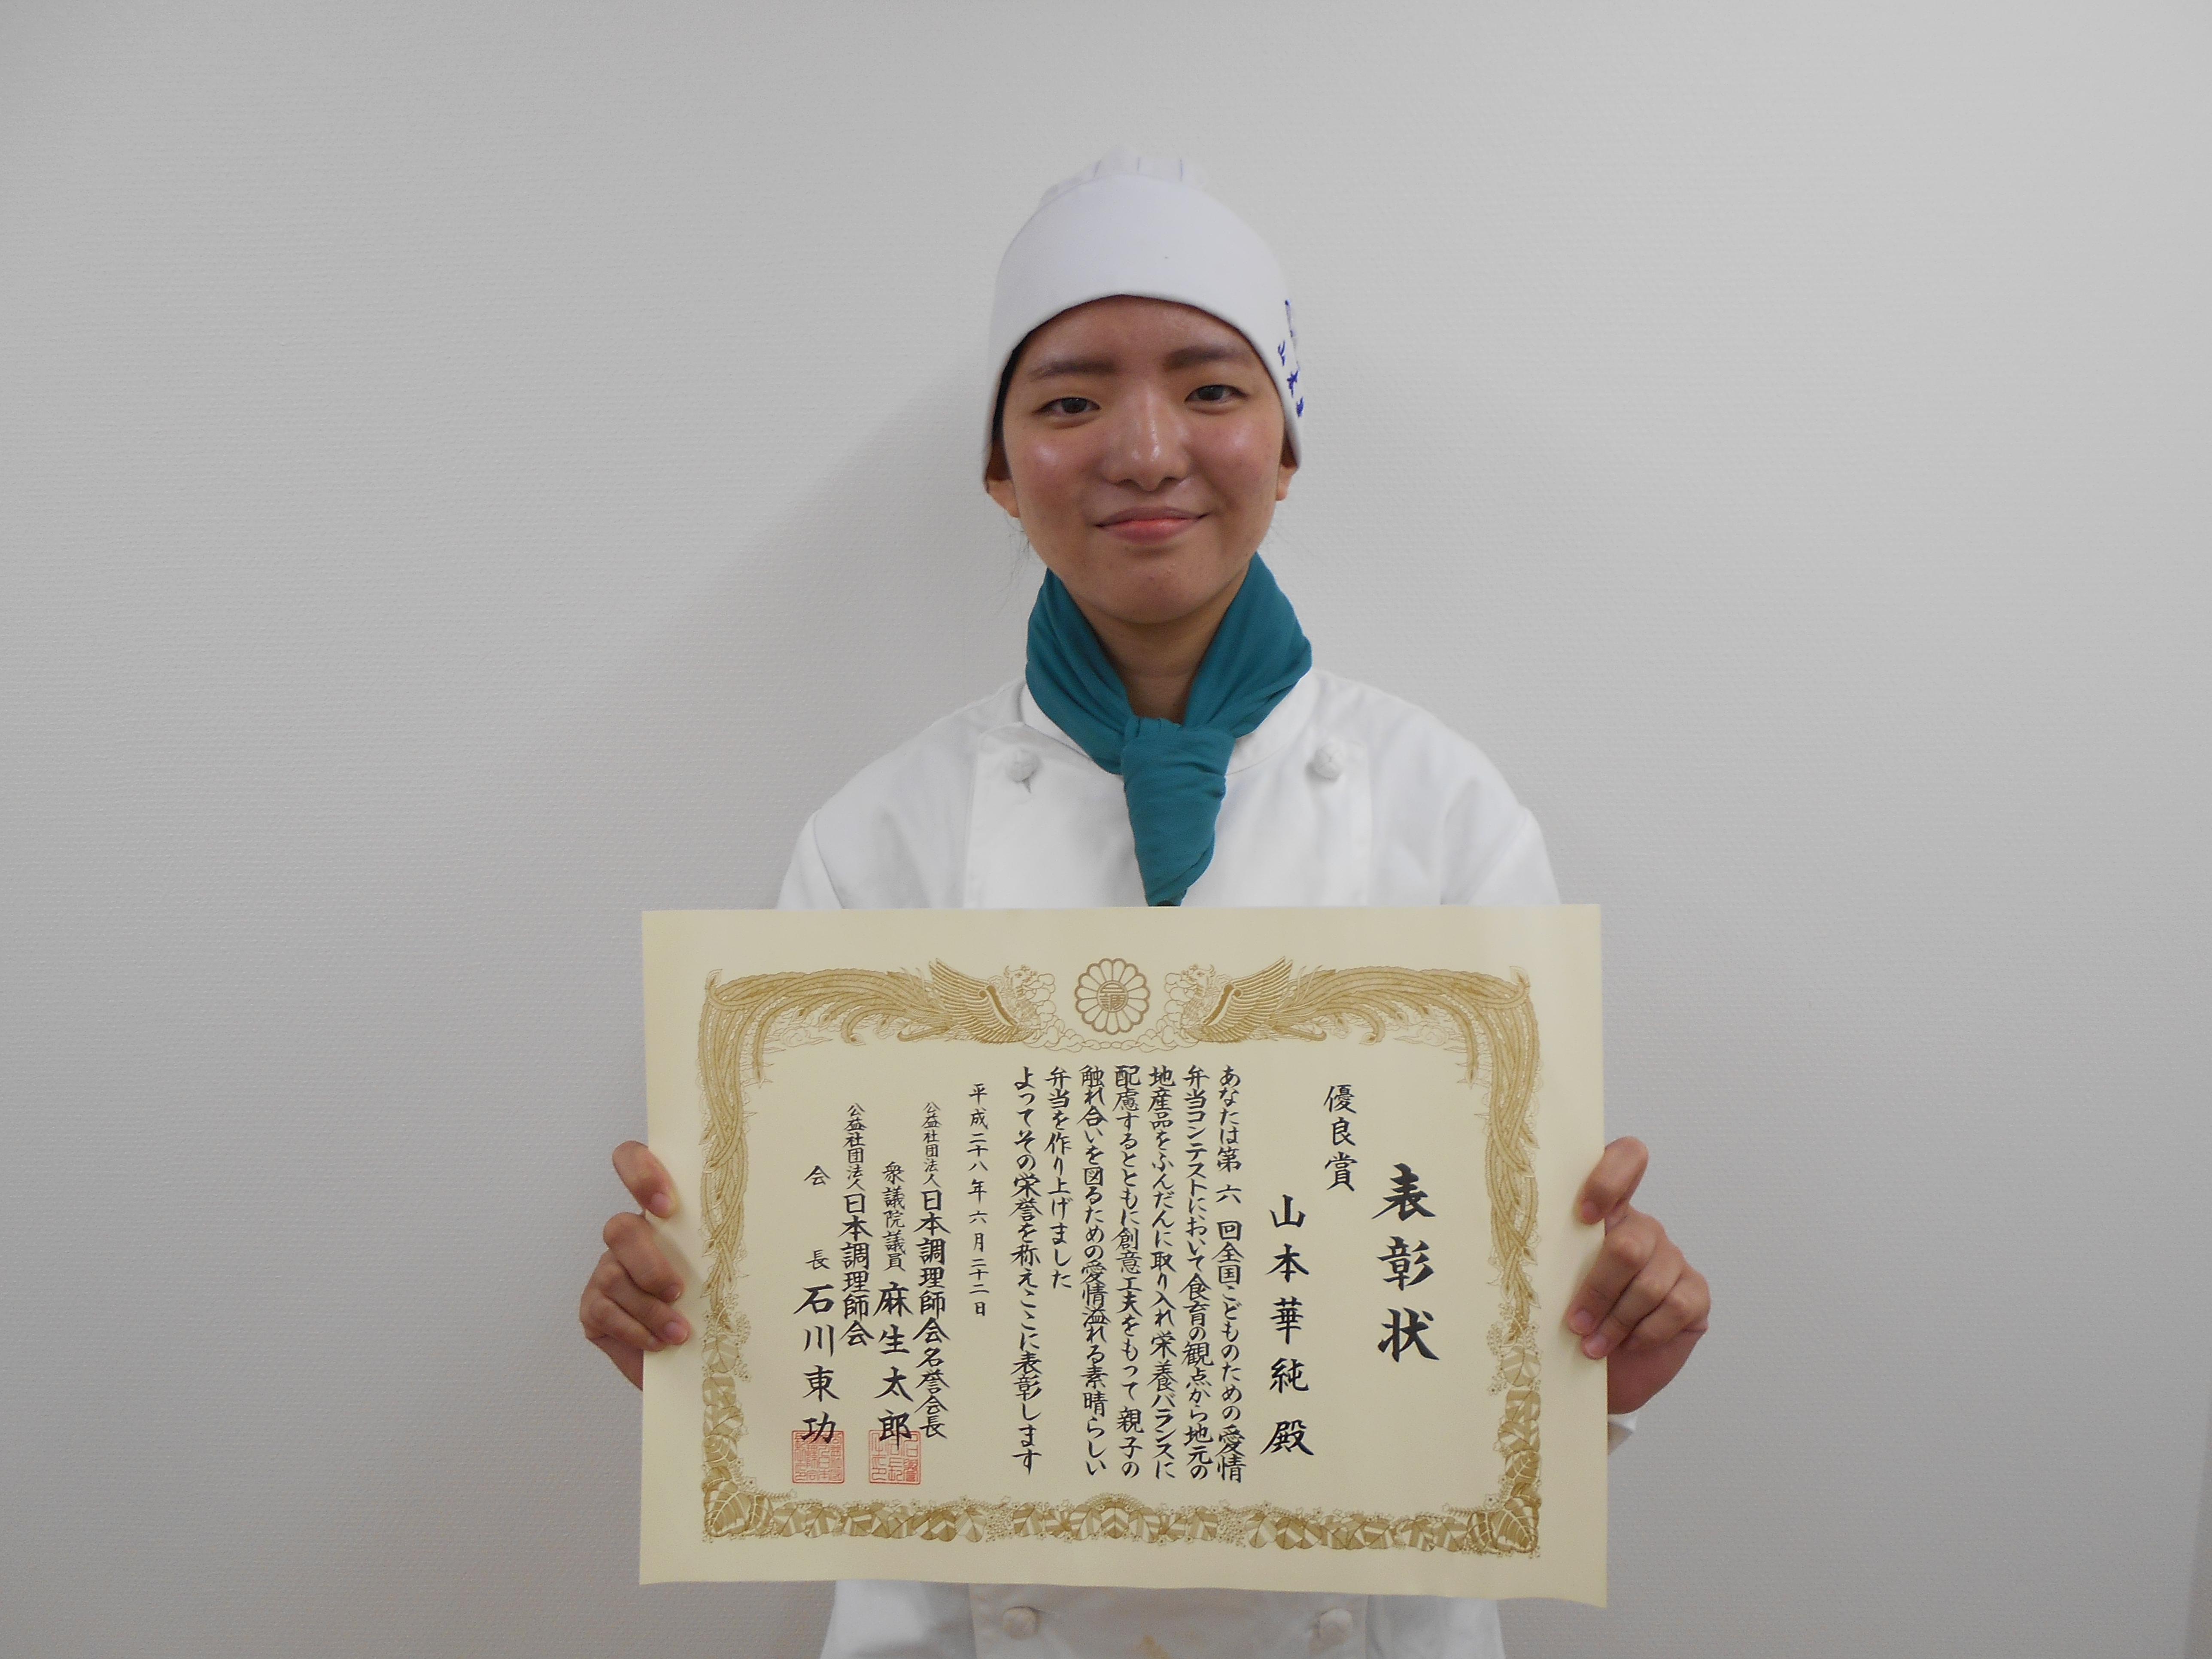 表彰状
優良賞
山本華純殿
あなたは第六回全国こどものための愛情
弁当コンテストにおいて食育の観点から地元の
地産品をふんだんに取り入れ栄養バランスに
配慮するとともに創意工夫をもって親子の
触れ合いを図るための愛情溢れる素晴らしい
弁当を作り上げました
よってその栄誉を称えここに表彰します
平成二十八年六月二十二日
公益社団法人日本調理師会名誉会長
衆議院議員 麻生太郎
公益社団法人日本調理師会
会長 石川東功